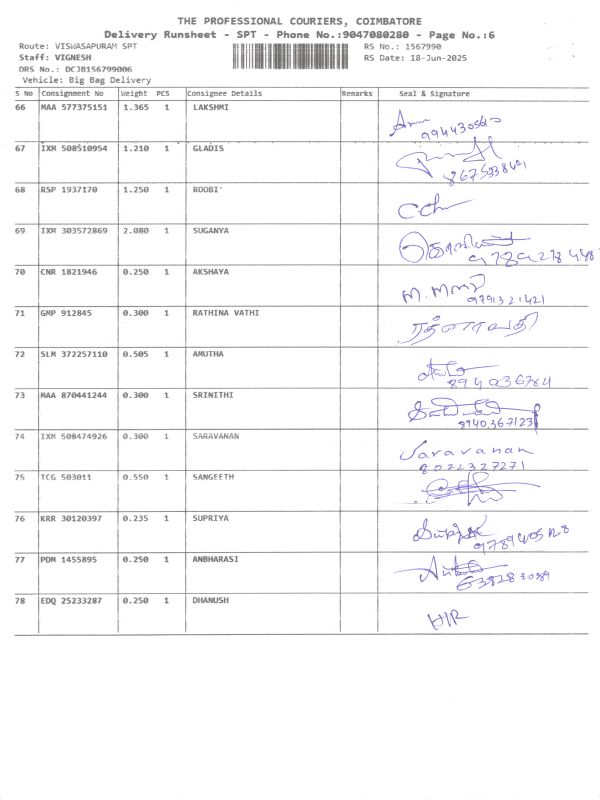 THE PROFESSIONAL COURIERS, COIMBATORE
Delivery Runsheet - SPT - Phone No.:9047080280 - Page No.:6
Route: VISWASAPURAM SPT RS No.: 1567990
Staff: VIGNESH RS Date: 18-Jun-2025
DRS No.: DCJB156799006
Vehicle: Big Bag Delivery
S No Consignment No Weight PCS Consignee Details Remarks Seal & Signature
66 MAA 577375151 1.365 1 LAKSHMI
67 IXM 508510954 1.210 1 GLADIS
68 RSP 1937170 1.250 1 ROOBI'
69 IXM 303572869 2.080 1 SUGANYA
70 CNR 1821946 0.250 1 AKSHAYA
9791321421
71 GMP 912845 0.300 1 RATHINA VATHI ரத்னாவதி
72 SLM 372257110 0.505 1 AMUTHA
894036784
73 MAA 870441244 0.300 1 SRINITHI
8940367123
74 IXM 508474926 0.300 1 SARAVANAN Saravanan
8022327271
75 TCG 503011 0.550 1 SANGEETH
76 KRR 30120397 0.235 1 SUPRIYA
77 PDM 1455895 0.250 1 ANBHARASI
78 EDQ 25233287 0.250 1 DHANUSH